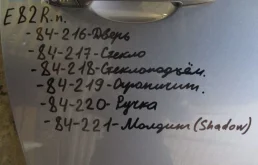 E82R.п.
-84-216-Дверь
-84-217-Стекло
-84-218-Стеклоподъём.
-84-219-Ограничит.
-84-220-Ручка
-84-221-Молдинг (Shadow)